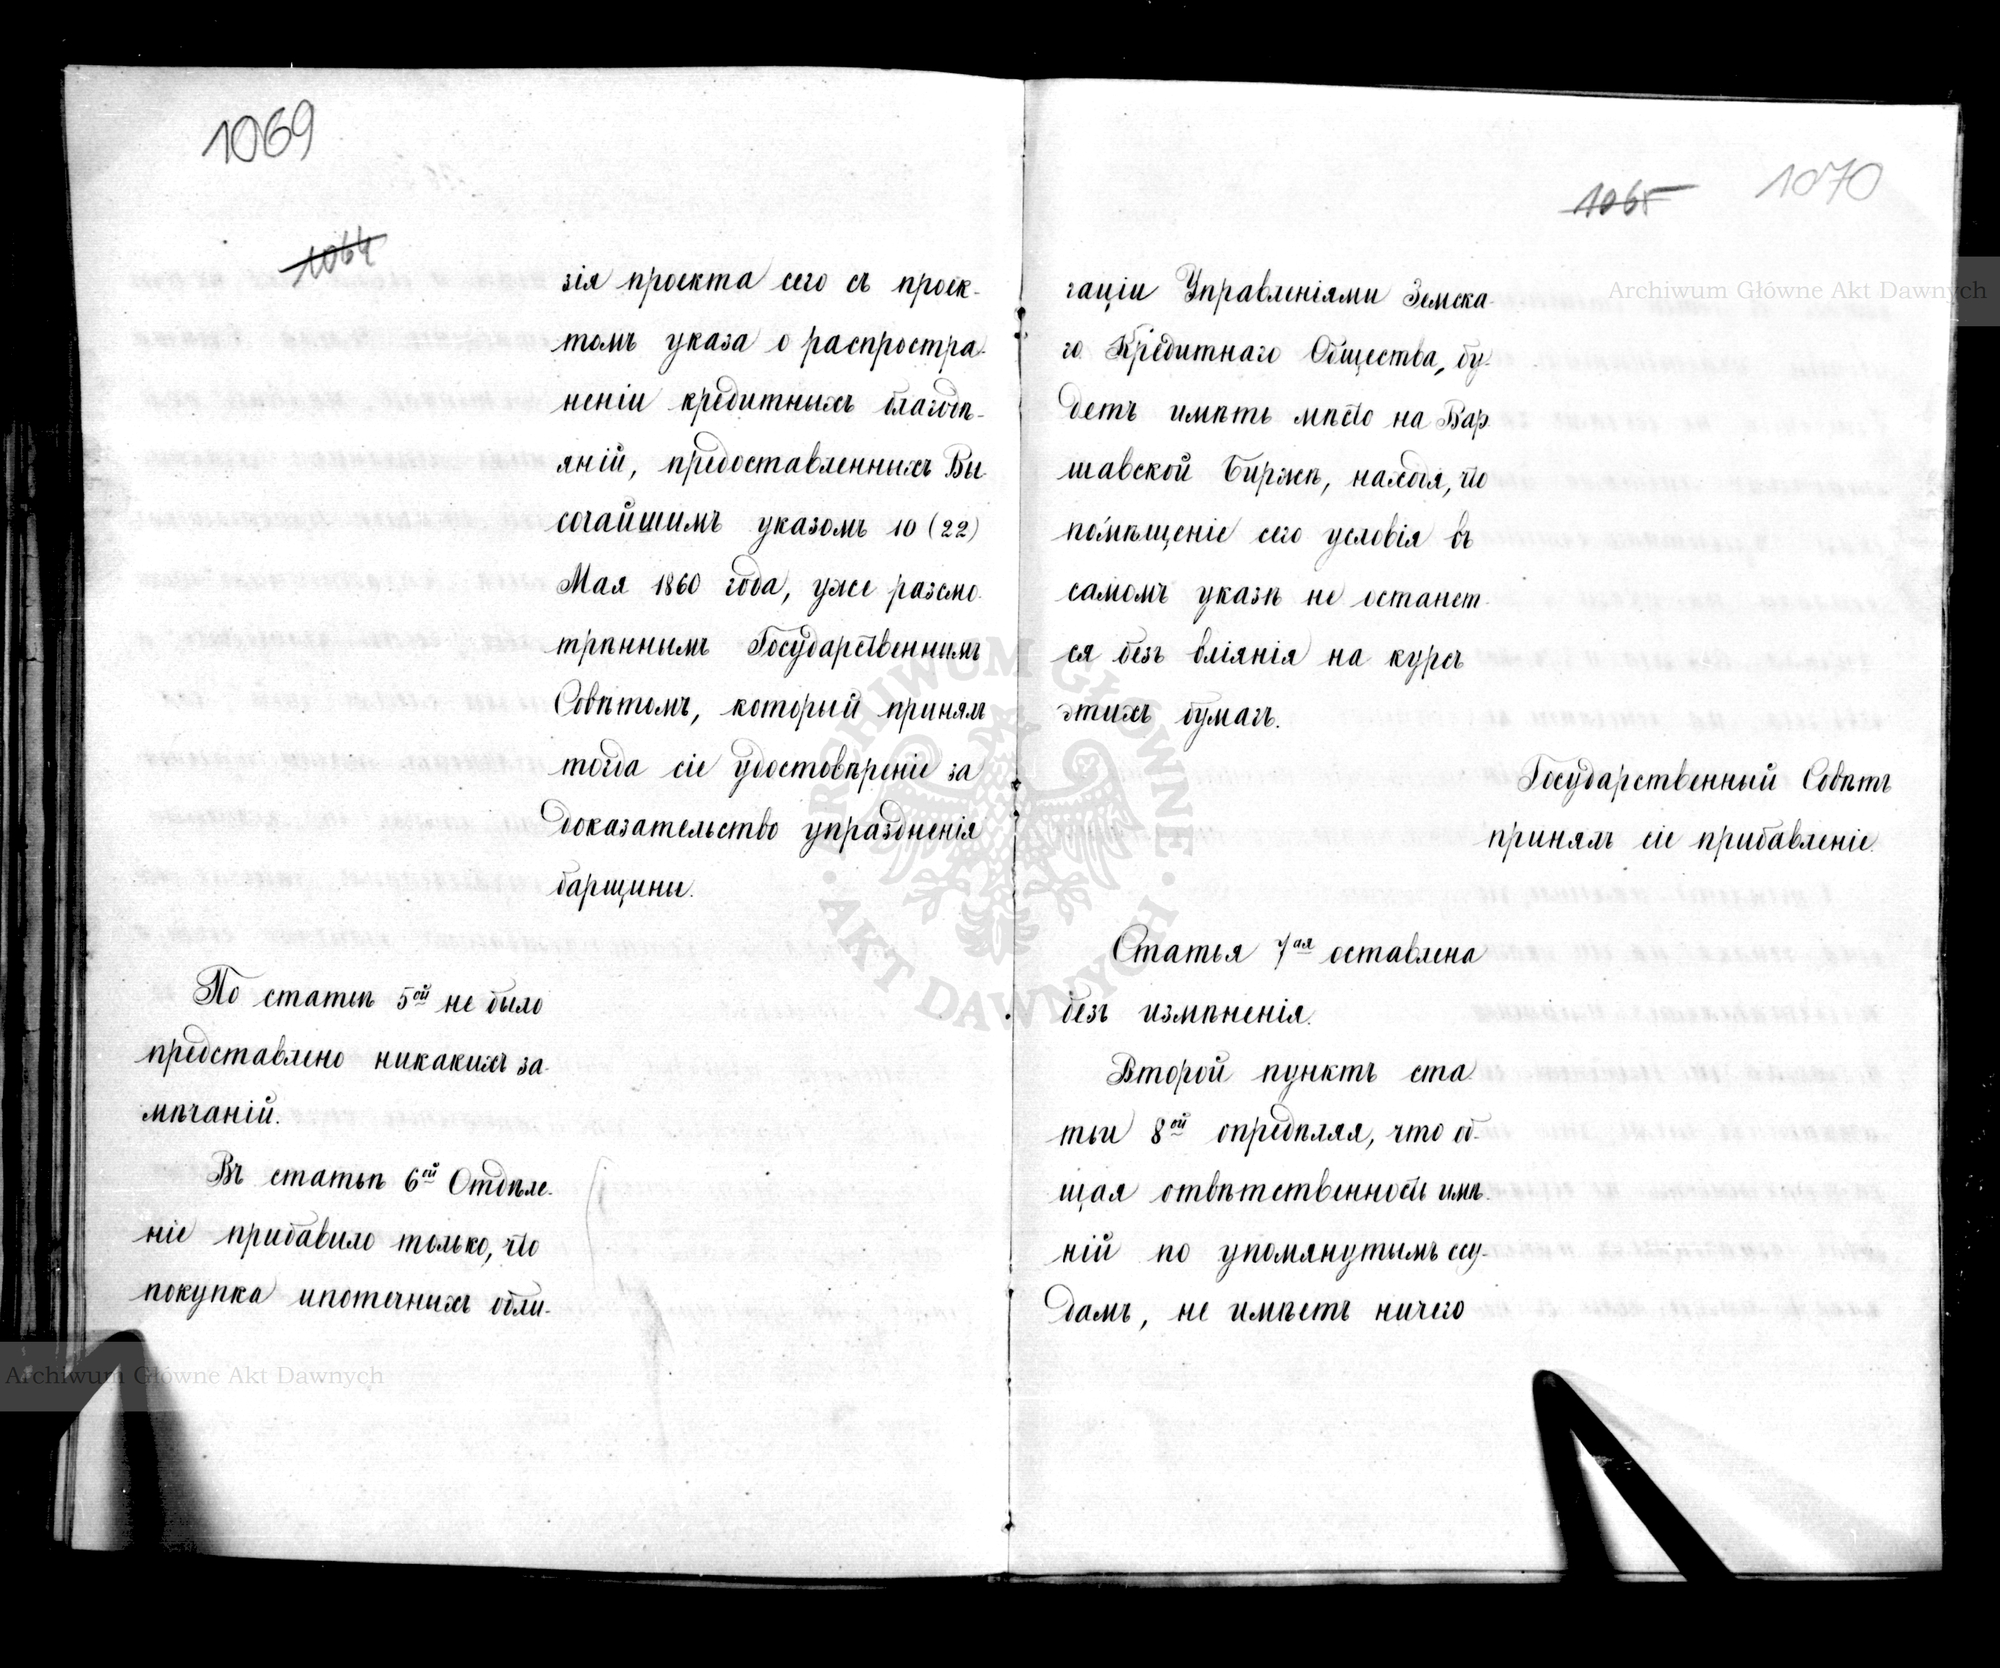 1069
1064
зія проекта сего съ проек-
томъ указа о распростра-
неніи кредитныхъ благодѣ-
яній, предоставленныхъ Вы-
сочайшимъ указомъ 10 (22)
Мая 1860 года, уже разсмо-
трѣннымъ Государственнымъ
Совѣтомъ, который принялъ
тогда сіе удостовѣреніе за
доказательство упраздненія
барщины.
По статьѣ 5ой не было
представлено никакихъ за-
мѣчаній.
Въ статьѣ 6ой Отдѣле-
ніе прибавило только, что
покупка ипотечныхъ обли-
1065
1070
гаціи Управленіями Земска-
го Кредитнаго Общества, бу-
детъ имѣть мѣсто на Вар-
шавской Биржѣ, находя, что
помѣщеніе сего условія въ
самомъ указѣ не останет-
ся безъ вліянія на курсъ
этихъ бумагъ.
Государственный Совѣтъ
принялъ сіе прибавленіе.
Статья 7ая оставлена
безъ измѣненія.
Второй пунктъ ста-
тьи 8ой опредѣляя, что об-
щая отвѣтственность имѣ-
ній по упомянутымъ ссу-
дамъ, не имѣетъ ничего
Archiwum Główne Akt Dawnych
Archiwum Główne Akt Dawnych
ARCHIWUM GŁÓWNE · AKT DAWNYCH ·